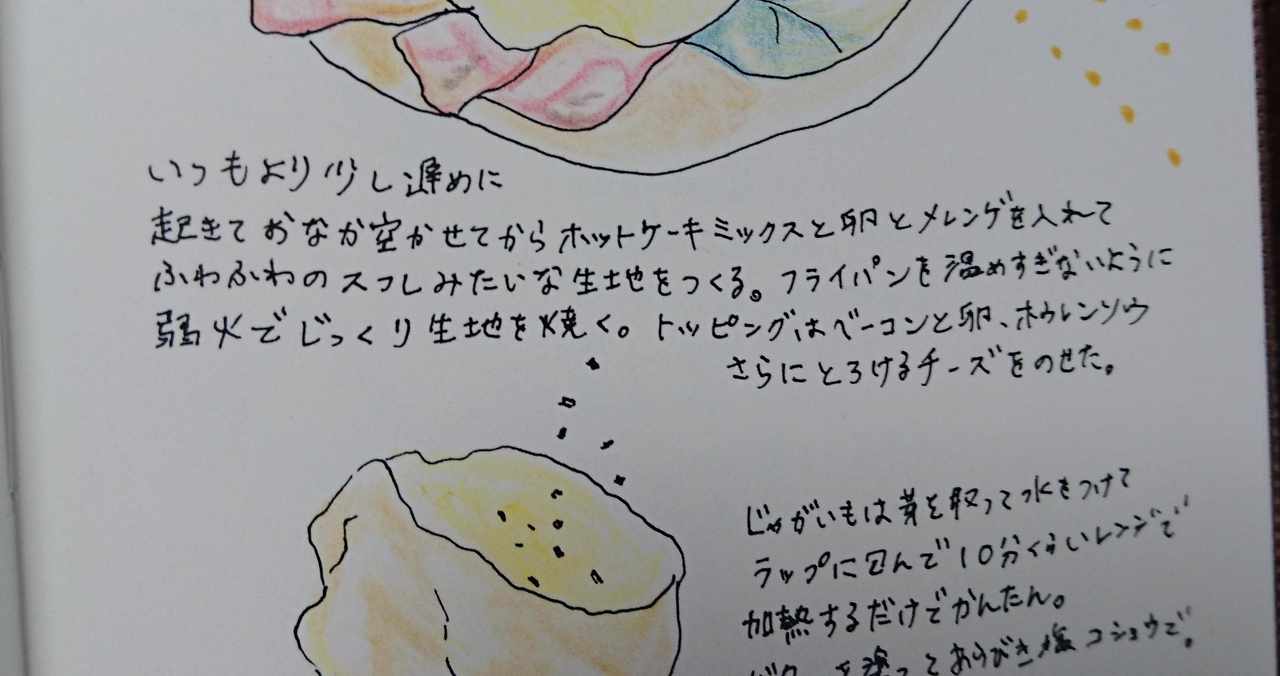 いつもより少し遅めに
起きておなか空かせてからホットケーキミックスと卵とメレンゲを入れて
ふわふわのスフレみたいな生地をつくる。フライパンを温めすぎないように
弱火でじっくり生地を焼く。トッピングはベーコンと卵、ホウレンソウ
さらにとろけるチーズをのせた。
じゃがいもは芽を取って水をつけて
ラップに包んで10分くらいレンジで
加熱するだけでかんたん。
を塗ってあらびき塩コショウで。